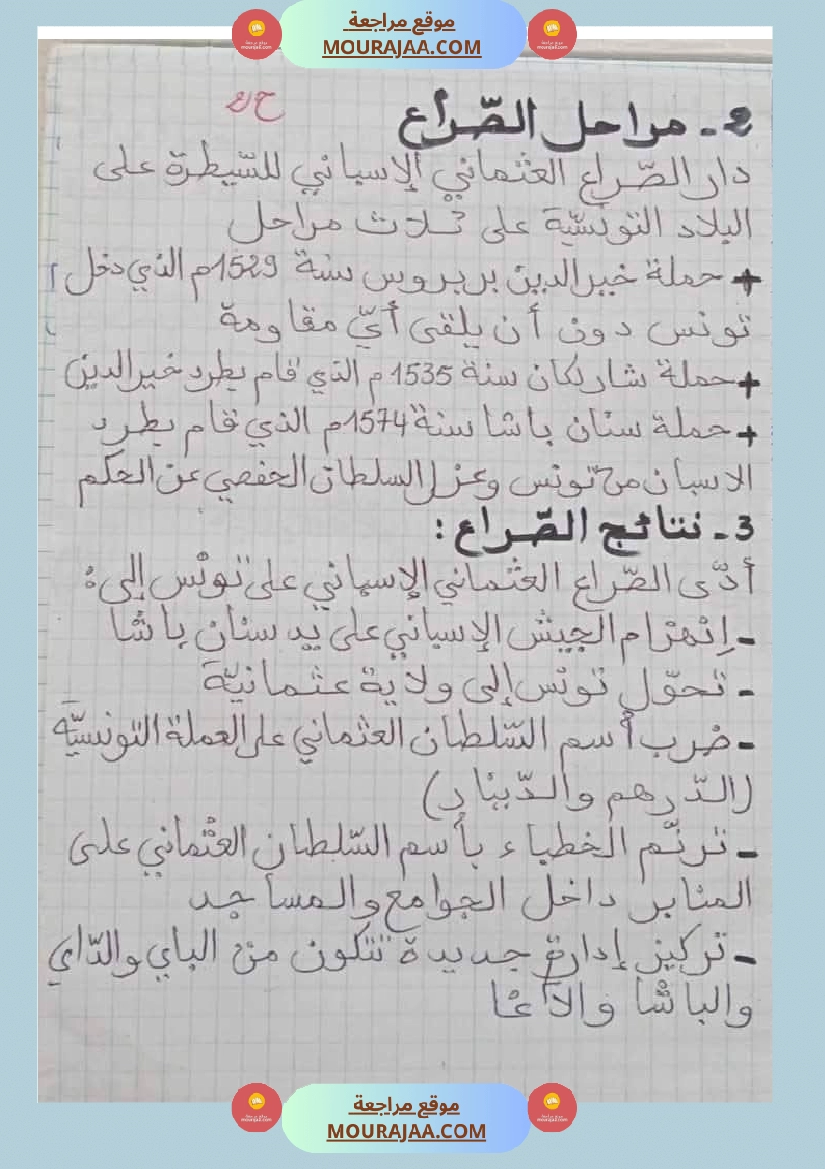 موقع مراجعة
MOURAJAA.COM
2 - مراحل الصّراع
دار الصّراع العثماني الإسباني للسّيطرة على
البلاد التونسّية على ثلاث مراحل
+ حملة خير الدين بربروس سنة 1529م الذي دخل
تونس دون أن يلقى أيّ مقاومة
+ حملة شارلكان سنة 1535 م الذي قام بطرد خير الدين
+ حملة سنان باشا سنة 1574م الذي قام بطرد
الاسبان من تونس وعزل السلطان الحفصي عن الحكم
3 - نتائج الصّراع :
أدّى الصّراع العثماني الإسباني على تونس إلى :
- إنهزام الجيش الإسباني على يد سنان باشا
- تحوّل تونس إلى ولاية عثمانيّة
- ضرب أسم السّلطان العثماني على العملة التونسيّة
(الدّرهم والدّينار)
- ترنّم الخطباء بأسم السّلطان العثماني على
المنابر داخل الجوامع والمساجد
- تركيز إدارة جديدة تتكون من الباي والدّاي
والباشا والآغا
موقع مراجعة
MOURAJAA.COM